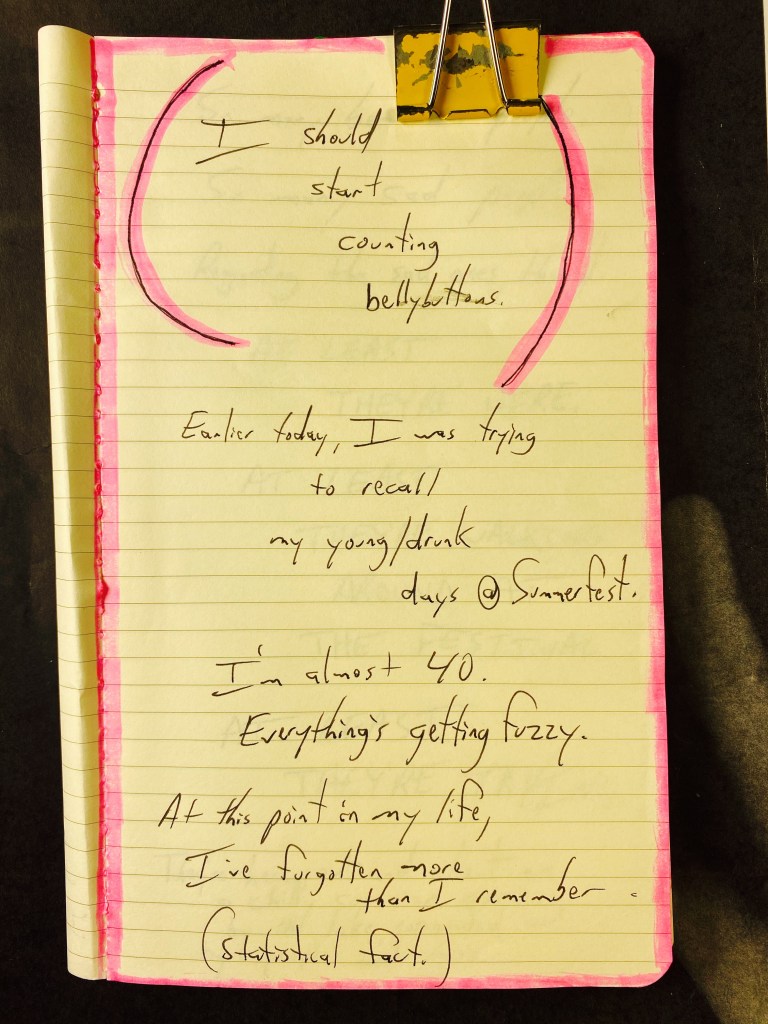 ( I should
start
counting
bellybuttons. )
Earlier today, I was trying
to recall
my young/drunk
days @ Summerfest.
I'm almost 40.
Everything's getting fuzzy.
At this point in my life,
I've forgotten more
than I remember.
(statistical fact.)